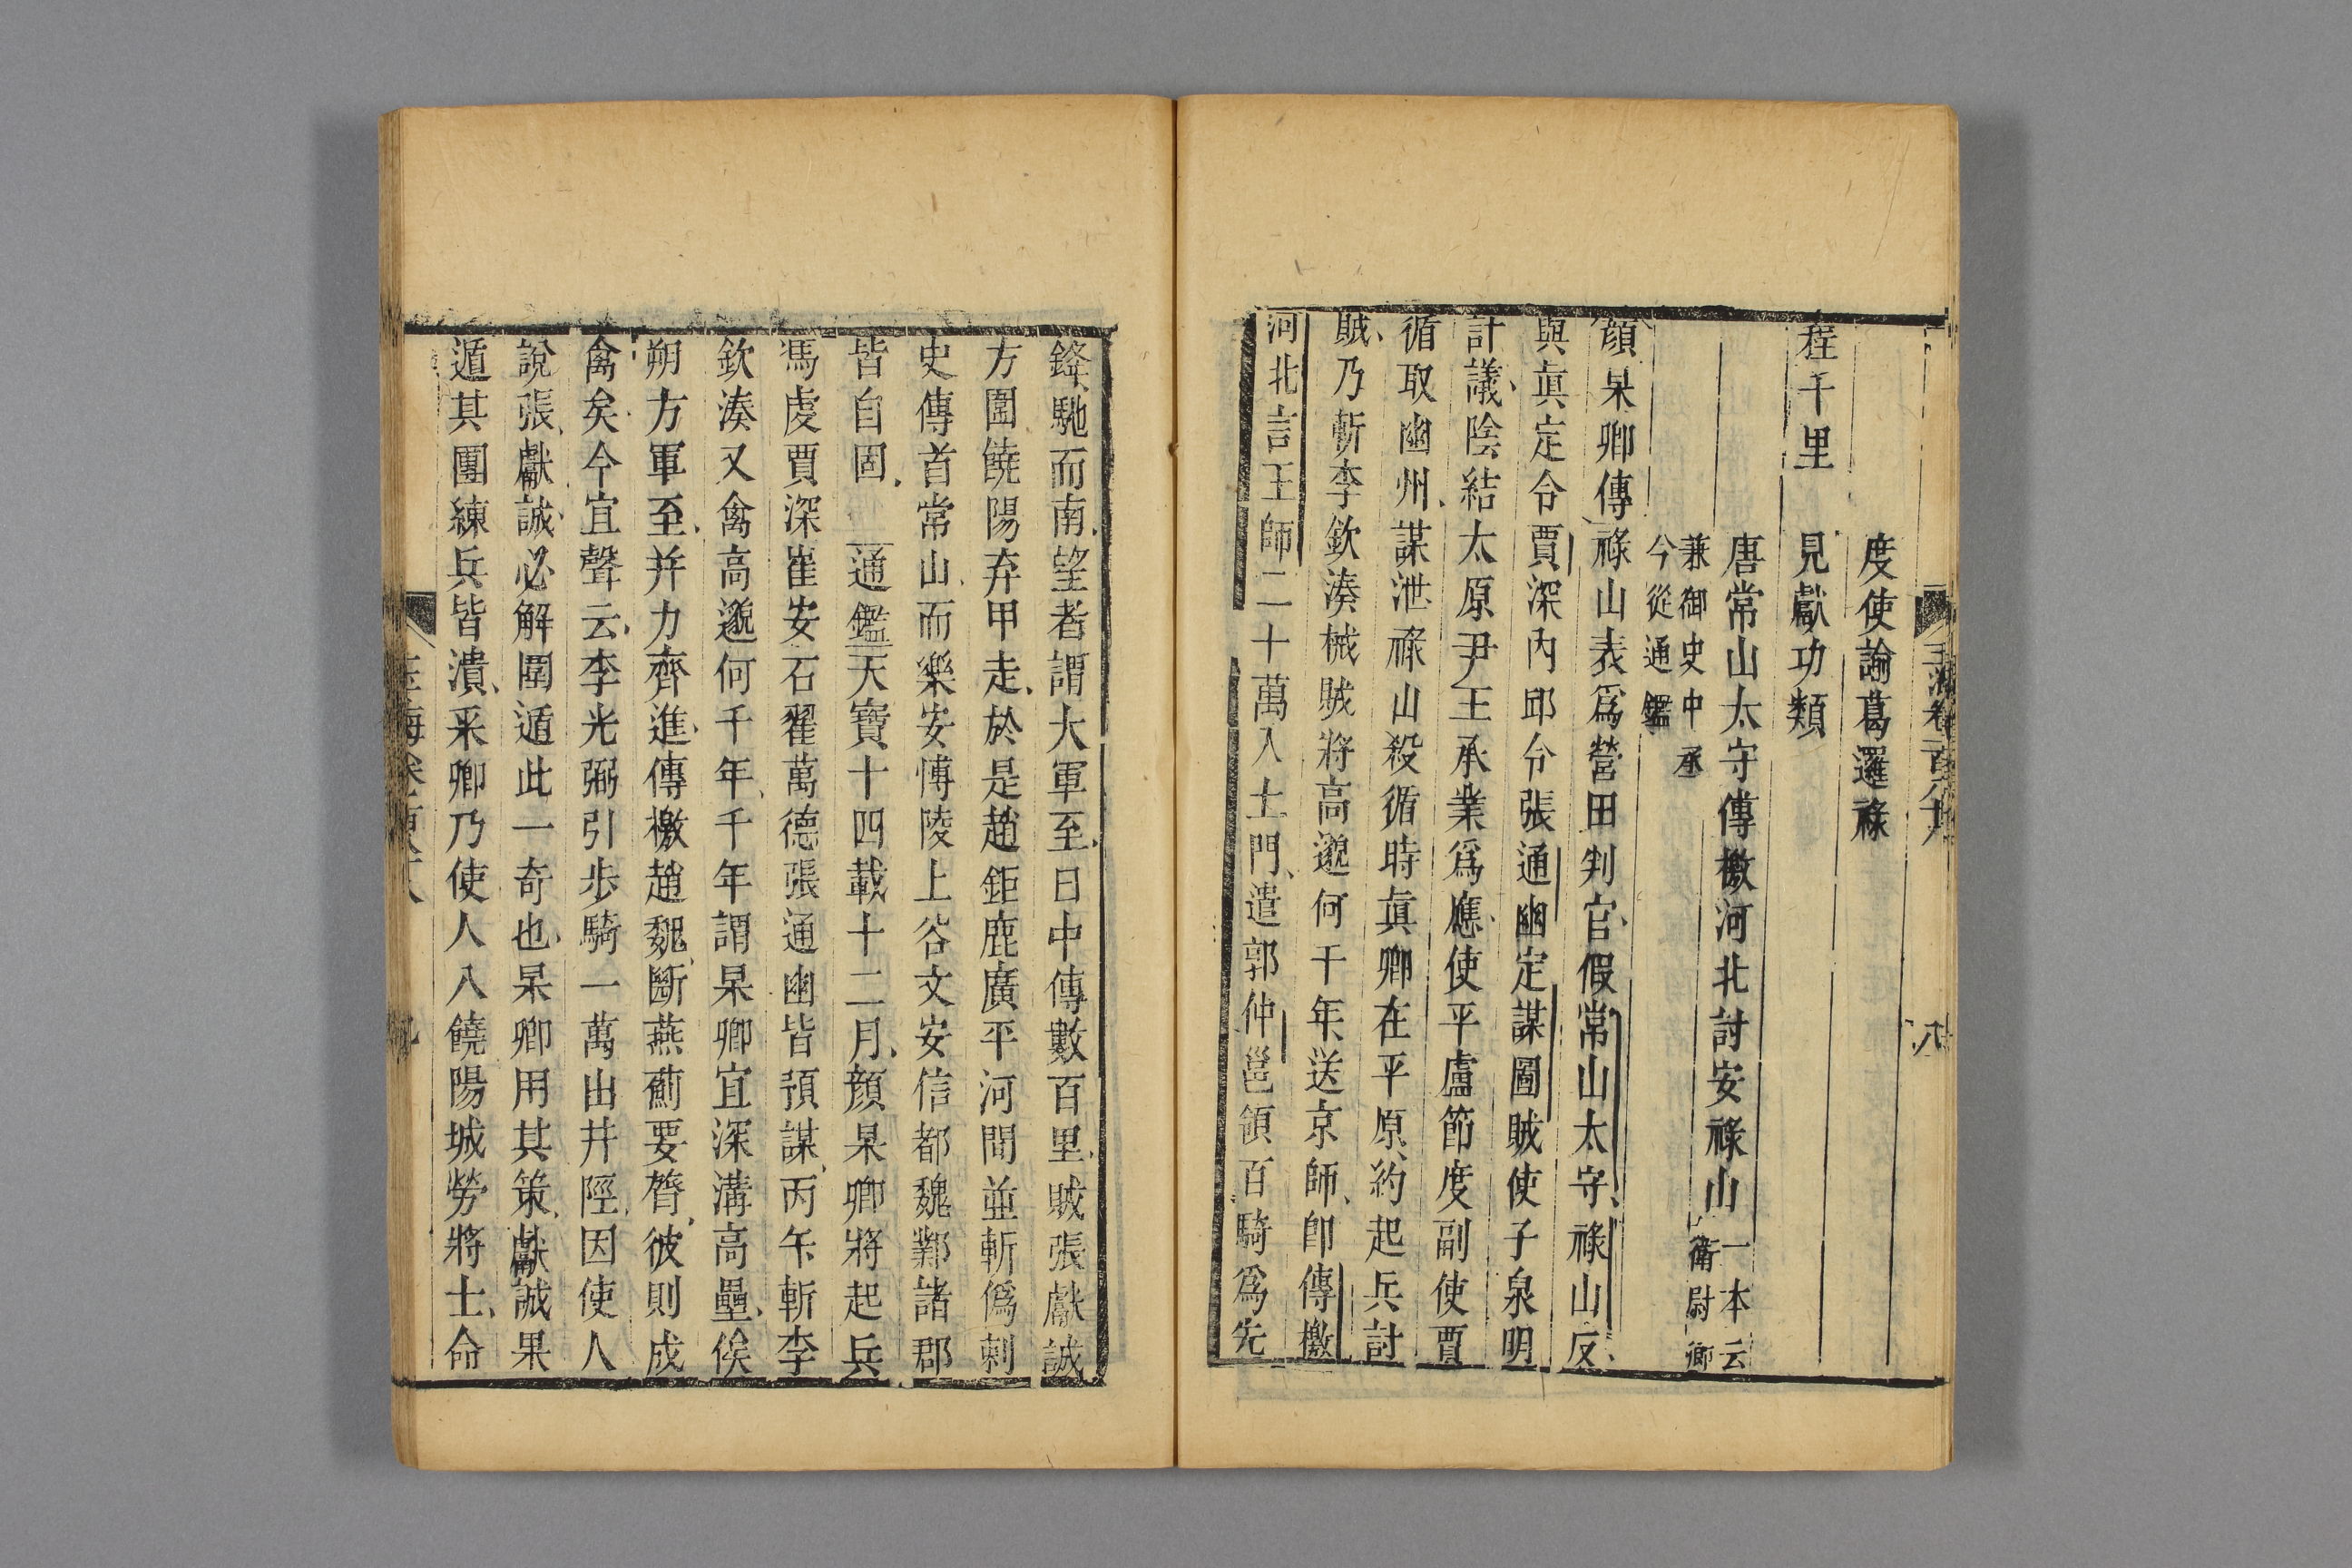 度使諭葛邏祿
程千里　見獻功類
唐常山太守傳檄河北討安祿山一本云衛尉卿
兼御史中丞
今從通鑑
顏杲卿傳祿山表爲營田判官假常山太守祿山反
與眞定令賈深內邱令張通幽定謀圖賊使子泉明
計議陰結太原尹王承業爲應使平盧節度副使賈
循取幽州謀泄祿山殺循時眞卿在平原約起兵討
賊乃斬李欽湊械賊將高邈何千年送京師卽傳檄
河北言王師二十萬入土門遣郭仲邕領百騎爲先
鋒馳而南望者謂大軍至日中傳數百里賊張獻誠
方圍饒陽弃甲走於是趙鉅鹿廣平河間並斬僞刺
史傳首常山而樂安博陵上谷文安信都魏鄴諸郡
皆自固　通鑑天寶十四載十二月顏杲卿將起兵
馮虔賈深崔安石翟萬德張通幽皆預謀丙午斬李
欽湊又禽高邈何千年千年謂杲卿宜深溝高壘俟
朔方軍至并力齊進傳檄趙魏斷燕薊要膂彼則成
禽矣今宜聲云李光弼引步騎一萬出井陘因使人
說張獻誠必解圍遁此一奇也杲卿用其策獻誠果
遁其團練兵皆潰杲卿乃使人入饒陽城勞將士命